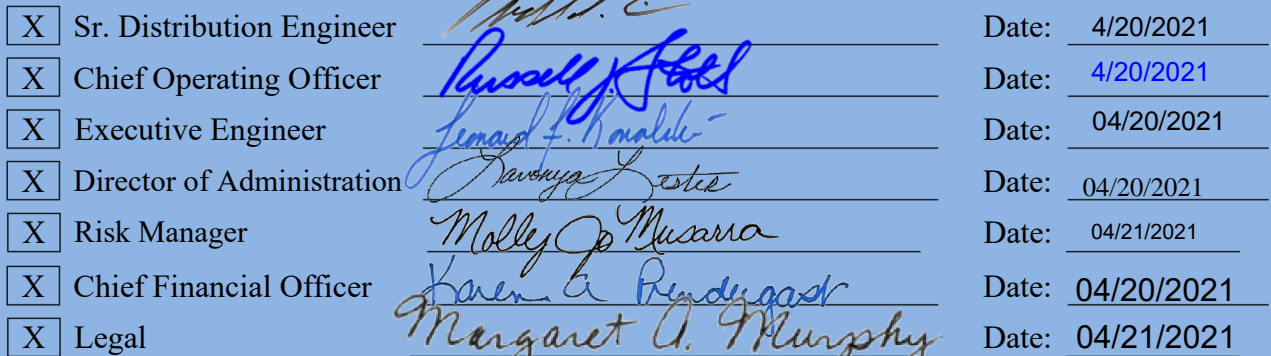 X Sr. Distribution Engineer Date: 4/20/2021
X Chief Operating Officer Russell J. Stoll Date: 4/20/2021
X Executive Engineer Leonard F. Kowalski Date: 04/20/2021
X Director of Administration Lavonya Lester Date: 04/20/2021
X Risk Manager Molly Jo Musarra Date: 04/21/2021
X Chief Financial Officer Karen A Prendergast Date: 04/20/2021
X Legal Margaret A. Murphy Date: 04/21/2021